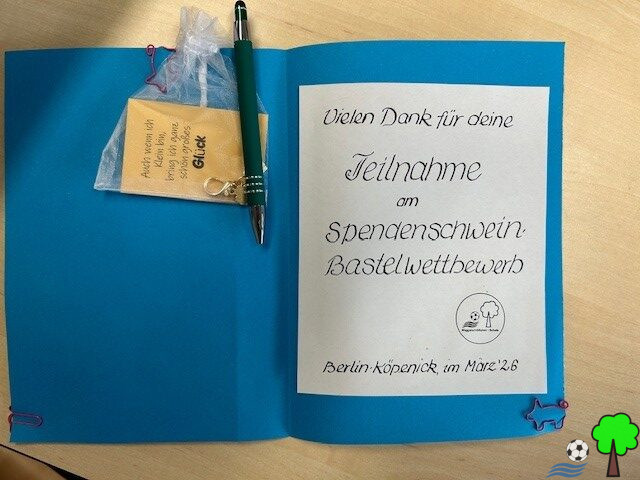 Auch wenn ich
klein bin,
bring ich ganz
schön großes
Glück
Vielen Dank für deine
Teilnahme
am
Spendenschwein-
Bastelwettbewerb
Berlin-Köpenick, im März '26